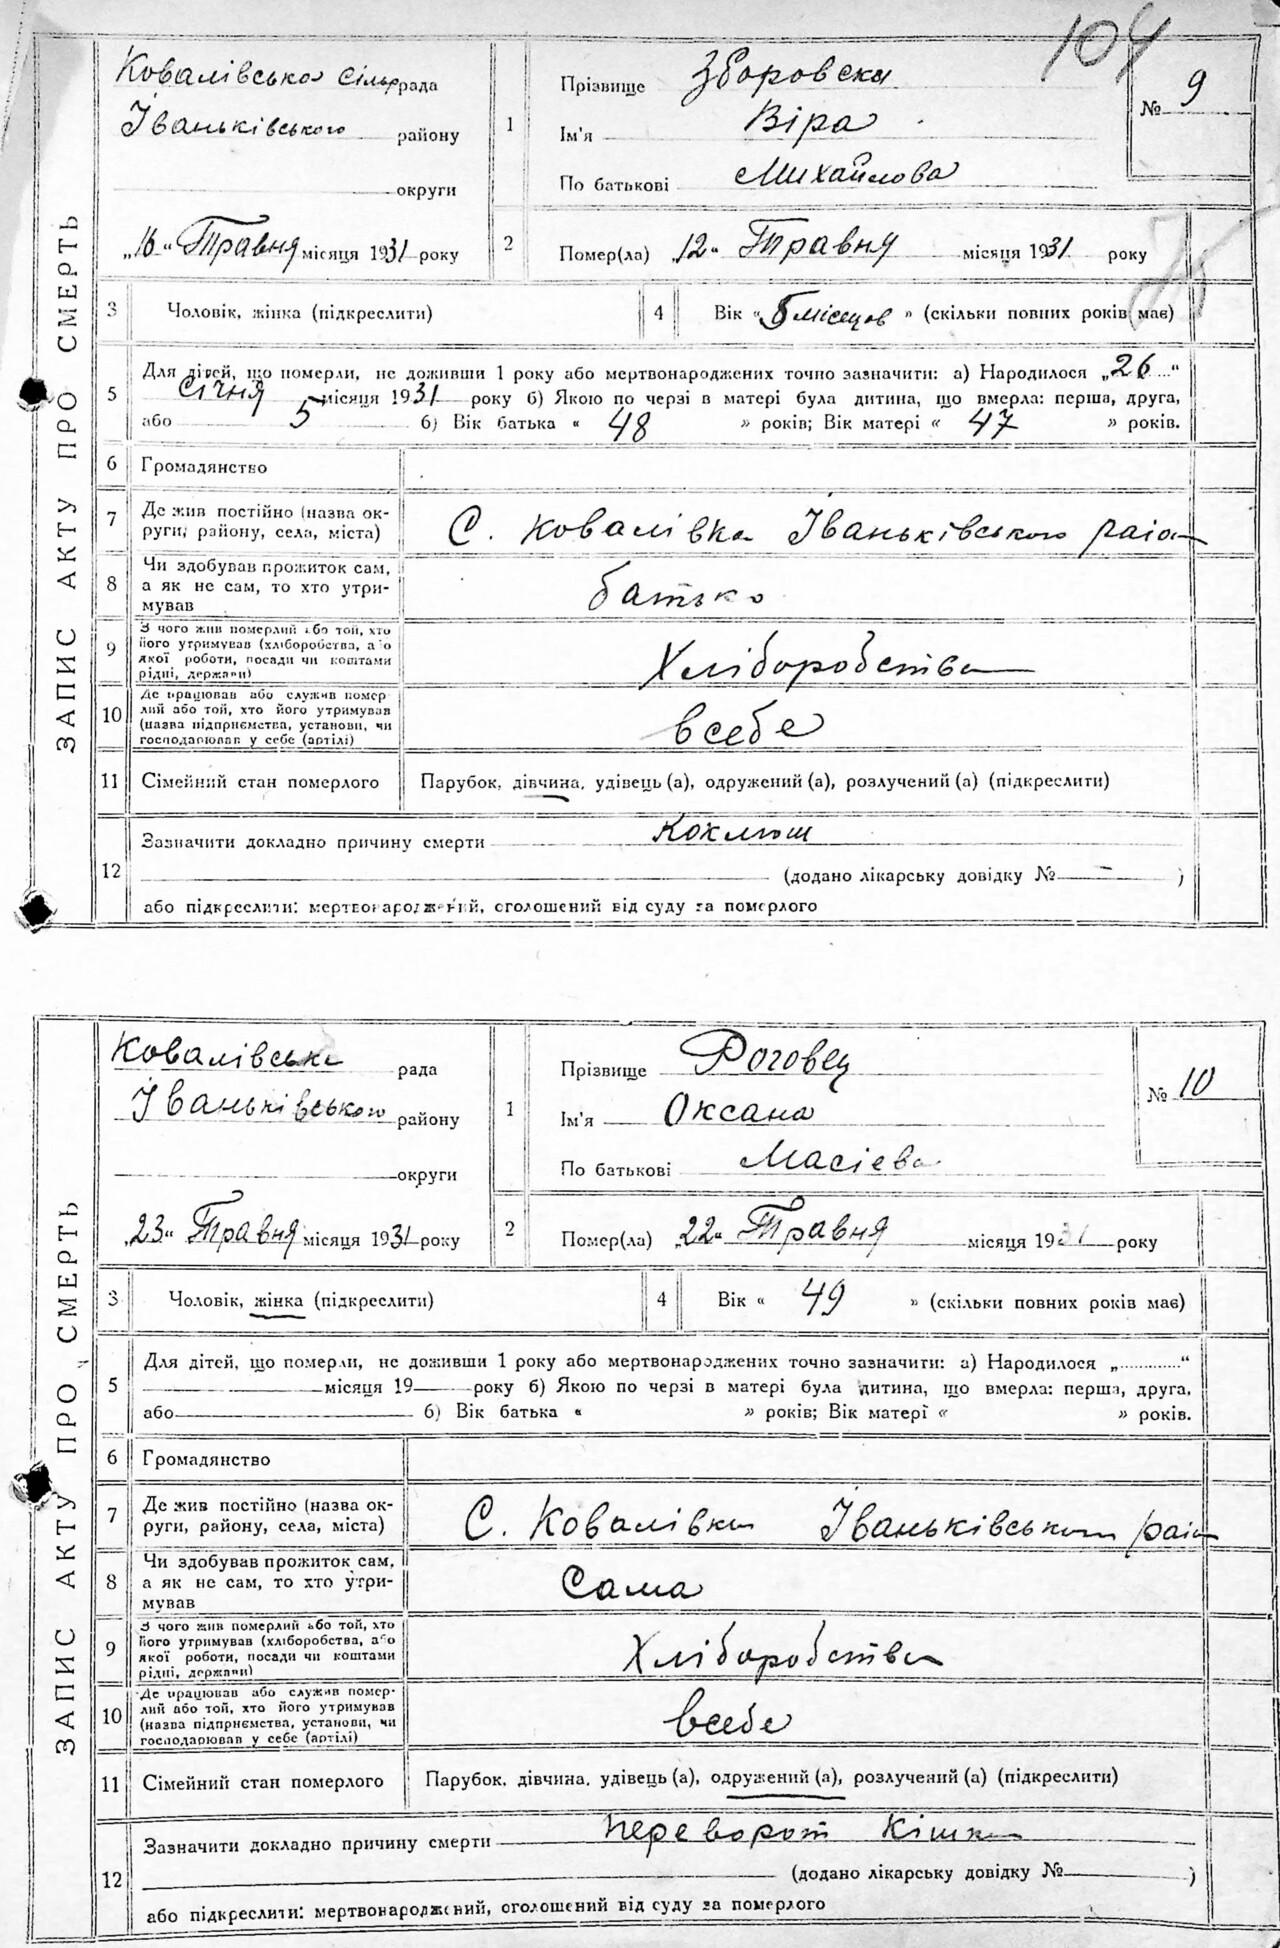 104
ЗАПИС АКТУ ПРО СМЕРТЬ
Ковалівська сільрада
Іваньківського району
округи
„16“ Травня місяця 1931 року
1
Прізвище Зборовска
Ім'я Віра
По батькові Михайлова
№ 9
2 Помер(ла) „12“ Травня місяця 1931 року
3 Чоловік, жінка (підкреслити)
4 Вік « 5 місецов » (скільки повних років має)
5 Для дітей, що померли, не доживши 1 року або мертвонароджених точно зазначити: а) Народилося „26“
січня місяця 1931 року б) Якою по черзі в матері була дитина, що вмерла: перша, друга,
або 5 б) Вік батька « 48 » років; Вік матері « 47 » років.
6 Громадянство
7 Де жив постійно (назва ок-
руги, району, села, міста) С. Ковалівка Іваньківського раіо
8 Чи здобував прожиток сам,
а як не сам, то хто утри-
мував батько
9 З чого жив померлий або той, хто
його утримував (хліборобства, або
якої роботи, посади чи коштами
рідні, держави) Хліборобства
10 Де працював або служив помер-
лий або той, хто його утримував
(назва підприємства, установи, чи
господарював у себе (артілі) всебе
11 Сімейний стан померлого Парубок, дівчина, удівець (а), одружений (а), розлучений (а) (підкреслити)
12 Зазначити докладно причину смерти Коклюш
(додано лікарську довідку № — )
або підкреслити: мертвонароджений, оголошений від суду за померлого
ЗАПИС АКТУ ПРО СМЕРТЬ
Ковалівська рада
Іваньківського району
округи
„23“ Травня місяця 1931 року
1
Прізвище Роговец
Ім'я Оксана
По батькові Масієва
№ 10
2 Помер(ла) „22“ Травня місяця 1931 року
3 Чоловік, жінка (підкреслити)
4 Вік « 49 » (скільки повних років має)
5 Для дітей, що померли, не доживши 1 року або мертвонароджених точно зазначити: а) Народилося „............“
місяця 19 року б) Якою по черзі в матері була дитина, що вмерла: перша, друга,
або б) Вік батька « » років; Вік матері « » років.
6 Громадянство
7 Де жив постійно (назва ок-
руги, району, села, міста) С. Ковалівка Іваньківського раіо
8 Чи здобував прожиток сам,
а як не сам, то хто утри-
мував Сама
9 З чого жив померлий або той, хто
його утримував (хліборобства, або
якої роботи, посади чи коштами
рідні, держави) Хліборобства
10 Де працював або служив помер-
лий або той, хто його утримував
(назва підприємства, установи, чи
господарював у себе (артілі) всебе
11 Сімейний стан померлого Парубок, дівчина, удівець (а), одружений (а), розлучений (а) (підкреслити)
12 Зазначити докладно причину смерти переворот Кішки
(додано лікарську довідку № )
або підкреслити: мертвонароджений, оголошений від суду за померлого